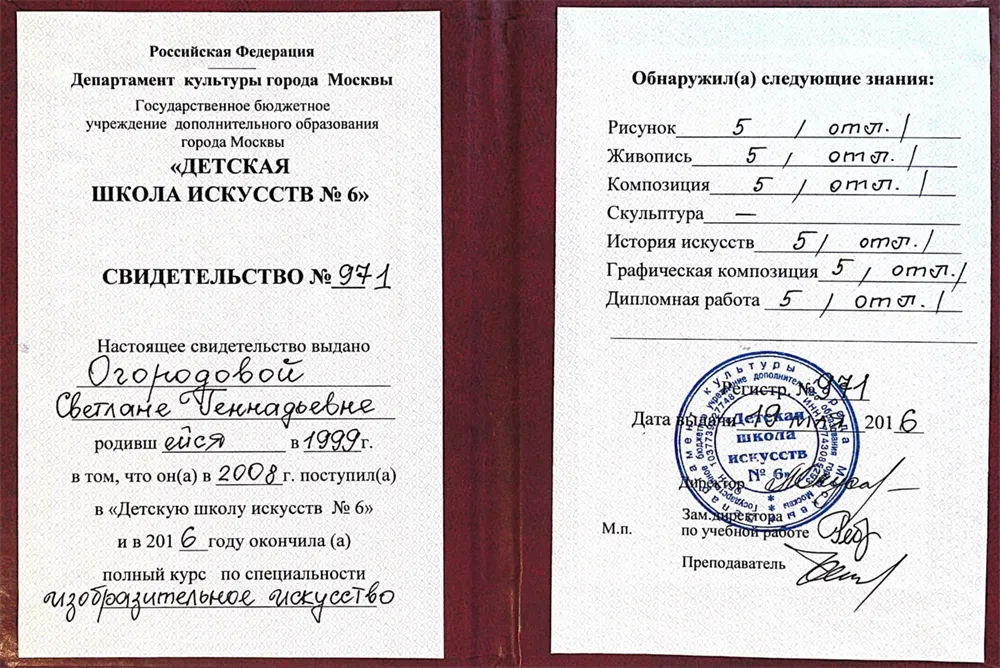 Российская Федерация
Департамент культуры города Москвы
Государственное бюджетное
учреждение дополнительного образования
города Москвы
«ДЕТСКАЯ
ШКОЛА ИСКУССТВ № 6»
СВИДЕТЕЛЬСТВО № 971
Настоящее свидетельство выдано
Огородовой
Светлане Геннадьевне
родивш ейся в 1999г.
в том, что он(а) в 2008 г. поступил(а)
в «Детскую школу искусств № 6»
и в 2016 году окончила (а)
полный курс по специальности
изобразительное искусство
Обнаружил(а) следующие знания:
Рисунок 5 / отл. /
Живопись 5 / отл. /
Композиция 5 / отл. /
Скульптура —
История искусств 5 / отл. /
Графическая композиция 5 / отл. /
Дипломная работа 5 / отл. /
Регистр. № 971
Дата выдачи 19 мая 2016
Детская
школа
искусств
№ 6»
Директор
Зам.директора
М.п. по учебной работе
Преподаватель